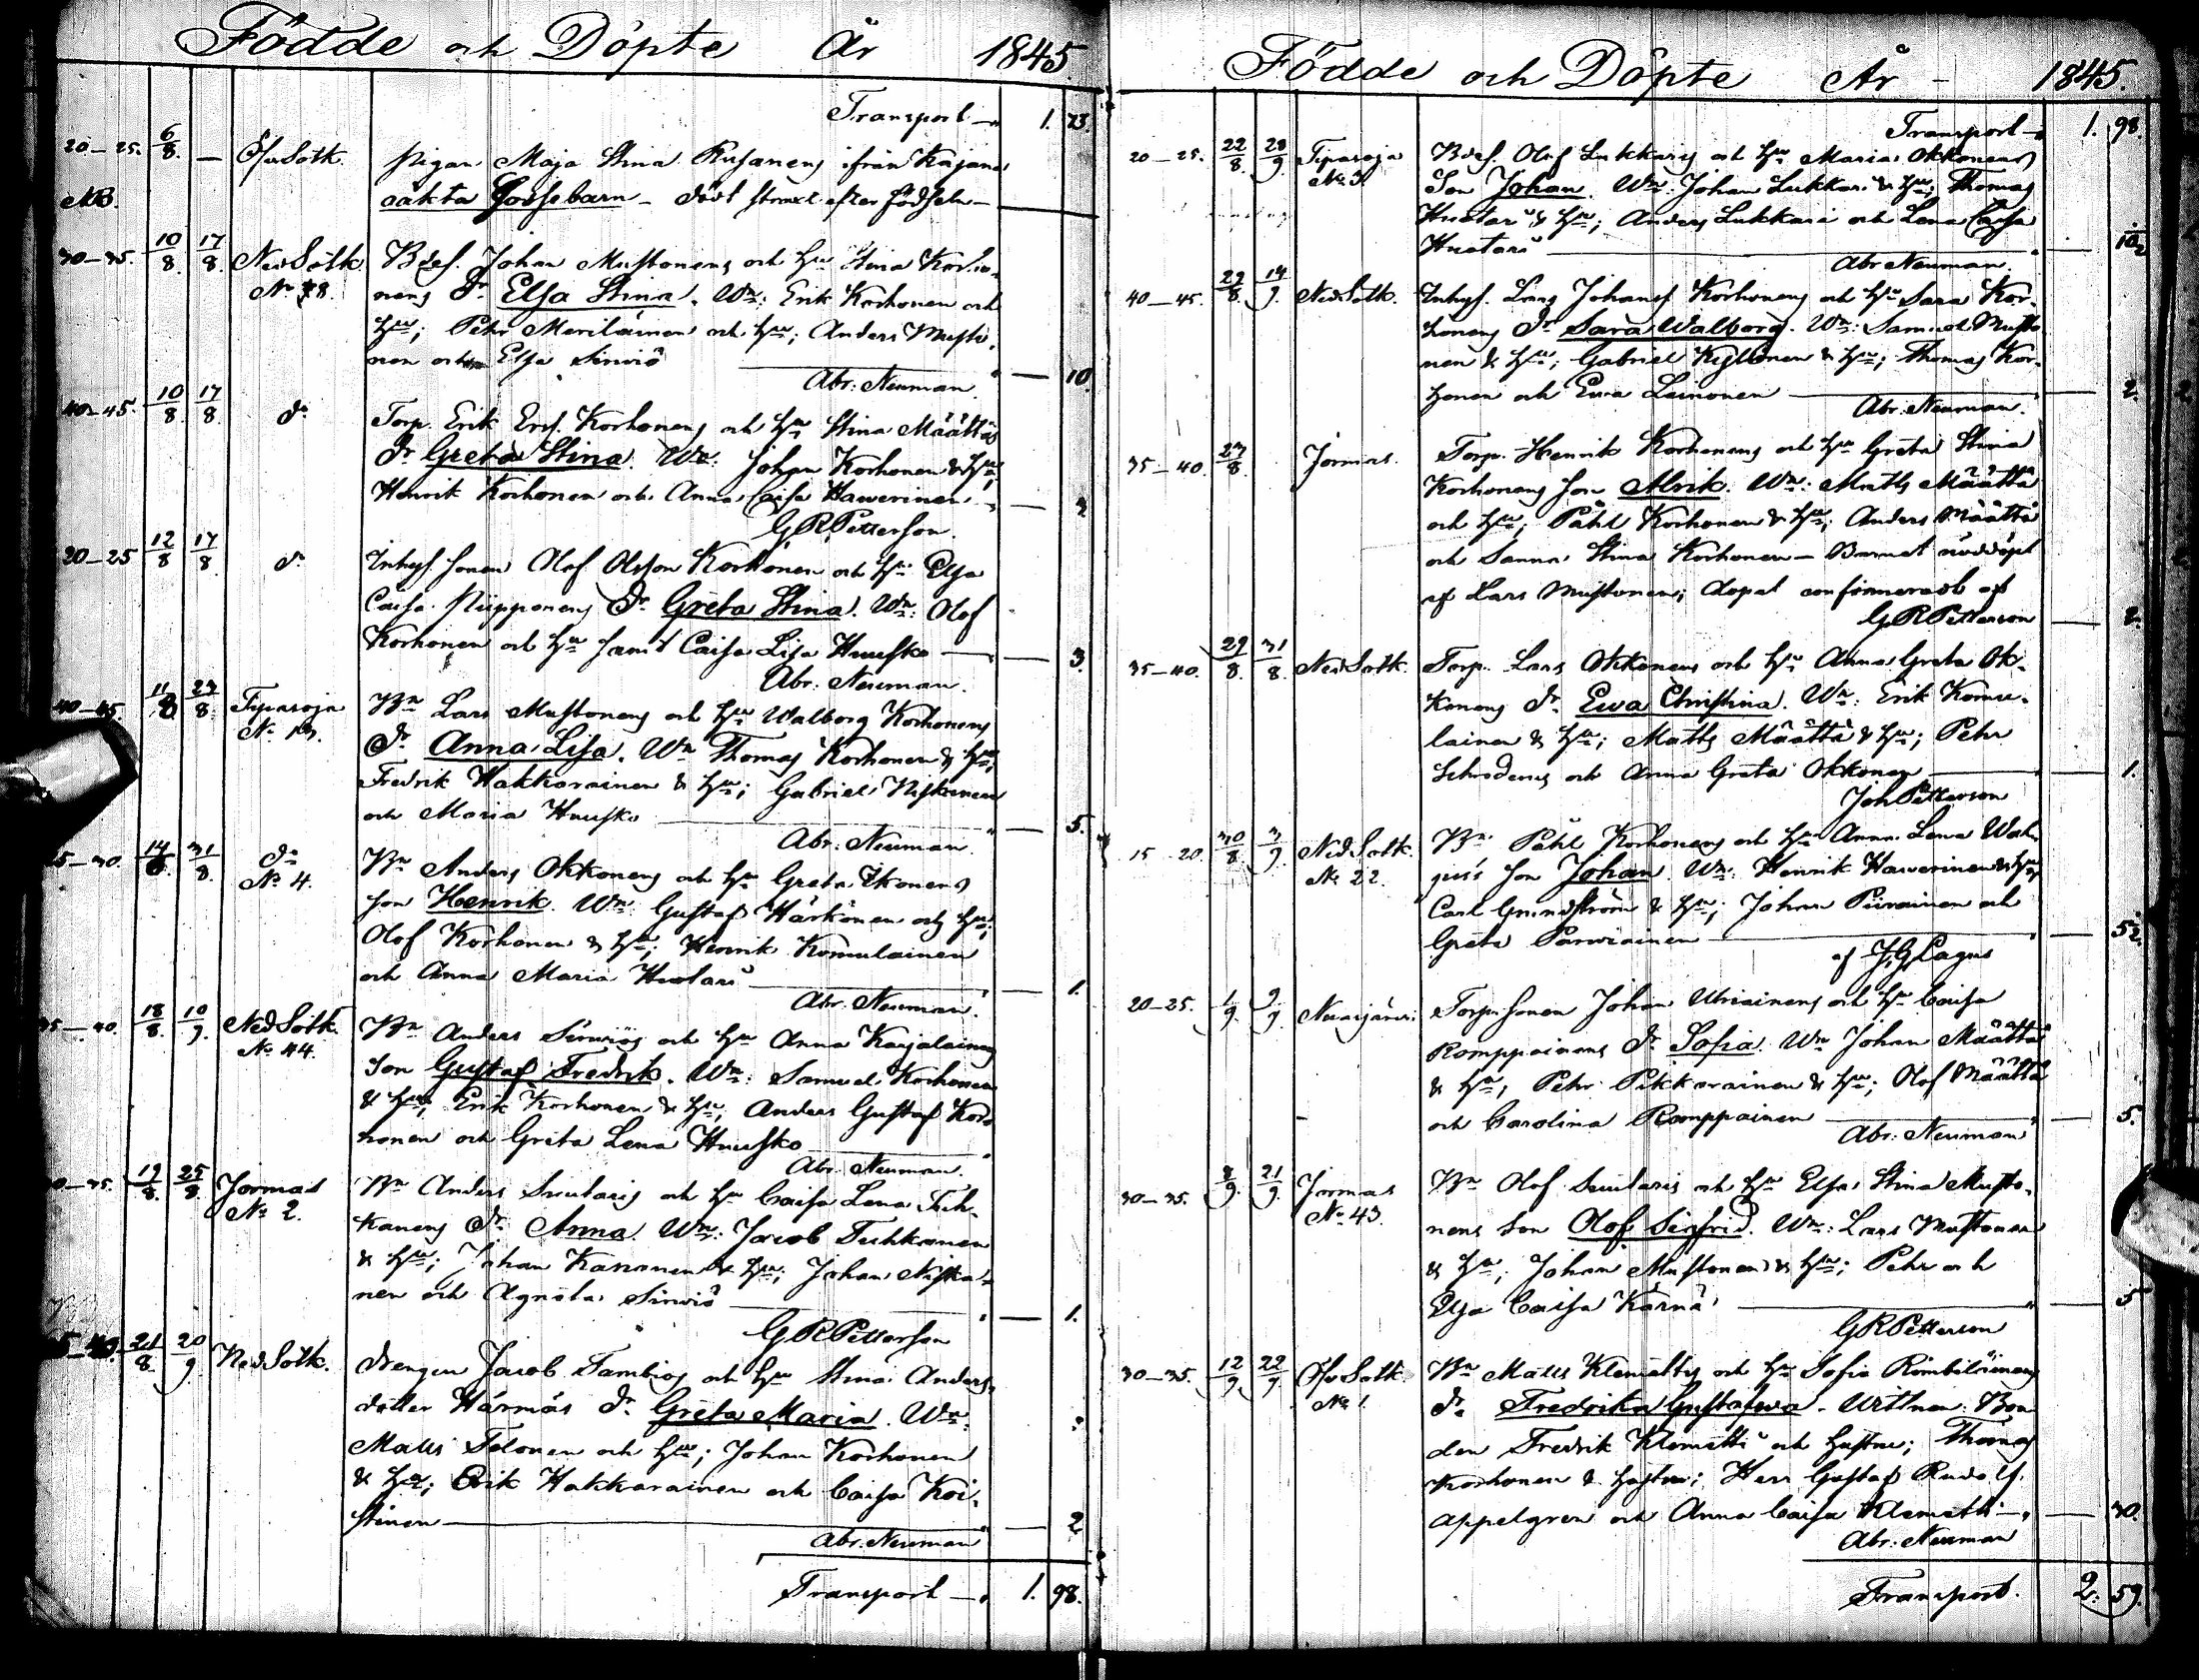 Födde och Döpte År 1845.
Transport 1. 73.
20–25. 6/8. — Öfv Sotk. Pigan Maja Stina Rusanens ifrån Kajana
NB. oäkta Gossebarn – dödt straxt efter födseln –
30–35. 10/8. 17/8. Ned Sotk. Bdes. Johan Mustonens och Hu Stina Korho-
nens Dr Elsa Stina. Wn: Erik Korhonen och
Hu; Pehr Meriläinen och Hu; Anders Musto-
nen och Elsa Sirviö — 10.
Abr. Neuman.
40–45. 10/8. 17/8. do Torp. Erik Ers. Korhonens och Hu Stina Määttäs
Dr Greta Stina. Wn: Johan Korhonen & Hu;
Henrik Korhonen och Anna Caisa Hawerinen
G R Petterson.
20–25 12/8 17/8 do Inhys. sonen Olof Olsson Korhonen och Hu Elsa
Caisa Piipponens Dr Greta Stina. Wn: Olof
Korhonen och Hu samt Caisa Lisa Huusko — 3.
Abr. Neuman.
40–45. 11/8 24/8. Tipasoja Bn Lars Mustonens och Hu Walborg Korhonens
Dr Anna Lisa. Wn Thomas Korhonen & Hu;
Fredrik Hakkarainen & Hu; Gabriel Niskanen
och Maria Huusko — 5.
Abr. Neuman.
14/8. 31/8 do No 4. Bn Anders Okkonens och Hu Greta Ikonens
son Henrik. Wn: Gustaf Härkönen och Hu;
Olof Korhonen & Hu; Henrik Komulainen
och Anna Maria Huotari — 1.
Abr. Neuman.
35–40. 18/8. 10/9. Ned Sotk. No 44. Bn Anders Sirviös och Hu Anna Karjalainens
Son Gustaf Fredrik. Wn: Samuel Korhonen
& Hu; Erik Korhonen & Hu; Anders Gustaf Kor-
honen och Greta Lena Huusko
Abr. Neuman.
19/8. 25/8 Jormas No 2. Bn Anders Seiularis och Hu Caisa Lena Tuh-
kanens Dr Anna. Wn: Jacob Tuhkanen
& Hu; Johan Kananen & Hu; Johan Niska-
nen och Agneta Sirviö — 1.
G R Petterson
21/8. 20/9 Ned Sotk. Drengen Jacob Tambios och Hu Stina Anders-
dotter Härmäs Dr Greta Maria. Wn:
Matts Tolonen och Hu; Johan Korhonen
& Hu; Erik Hakkarainen och Caisa Koi-
stinen — 2
Abr. Neuman
Transport 1. 98.
Födde och Döpte År – 1845.
Transport 1. 98.
20–25. 22/8. 28/9. Tipasoja No 3. Bdes. Olof Lukkaris och Hu Maria Okkonens
Son Johan. Wn: Johan Lukkari & Hu; Thomas
Huotari & Hu; Anders Lukkari och Lena Caisa
Huotari
Abr Neuman.
40–45. 14/9. Ned Sotk. Inhys. Lars Johanss Korhonens och Hu Sara Kor-
honens Dr Sara Walborg. Wn: Samuel Musto-
nen & Hu; Gabriel Kyllönen & Hu; Thomas Kor-
honen och Ewa Leinonen — 2.
Abr. Neuman.
35–40. 27/8. Jormas. Torp. Henrik Korhonens och Hu Greta Stina
Korhonens son Alrik. Wn: Matts Määttä
och Hu; Påhl Korhonen & Hu; Anders Määttä
och Sanna Stina Korhonen – Barnet nöddöpt
af Lars Mustonen; dopet confirmeradt af
G R Petterson — 2.
35–40. 29/8. 31/8 Ned Sotk. Torp. Lars Okkonens och Hu Anna Greta Ok-
konens Dr Ewa Christina. Wn: Erik Komu-
lainen & Hu; Matts Määttä & Hu; Pehr
Schroderus och Anna Greta Okkonen — 1.
Joh Petterson
15–20. 30/8 3/9. Ned Sotk. No 22. Bn Påhl Korhonens och Hu Anna Lena
son Johan. Wn: Henrik Hawerinen & Hu;
Carl Grundström & Hu; Johan Piirainen och
Greta Parwiainen
af J,G, Lagus
20–25. 1/9. 9/9. Torp. sonen Johan Uriainens och Hu Caisa
Romppainens Dr Sofia. Wn Johan Määttä
& Hu; Pehr Pikkarainen & Hu; Olof Määttä
och Carolina Romppainen — 5.
Abr. Neuman
30–35. 8/9. 21/9. Jormas No 43. Bn Olof Seiularis och Hu Elsa Stina Musto-
nens Son Olof Sigfrid. Wn: Lars Mustonen
& Hu; Johan Mustonen & Hu; Pehr och
Elsa Caisa Kärnä — 5
G R Petterson
30–35. 12/9 22/9. Öfv Sotk. No 1. Bn Matts Klemettis och Hu Sofia
Dr Fredrika Gustafwa. Wittnen: Bon-
den Fredrik Klemetti och hustru; Thomas
Korhonen & hustru; Herr Gustaf Rudolf
Appelgren och Anna Caisa Klemetti — 30.
Abr. Neuman
Transport. 2. 59.